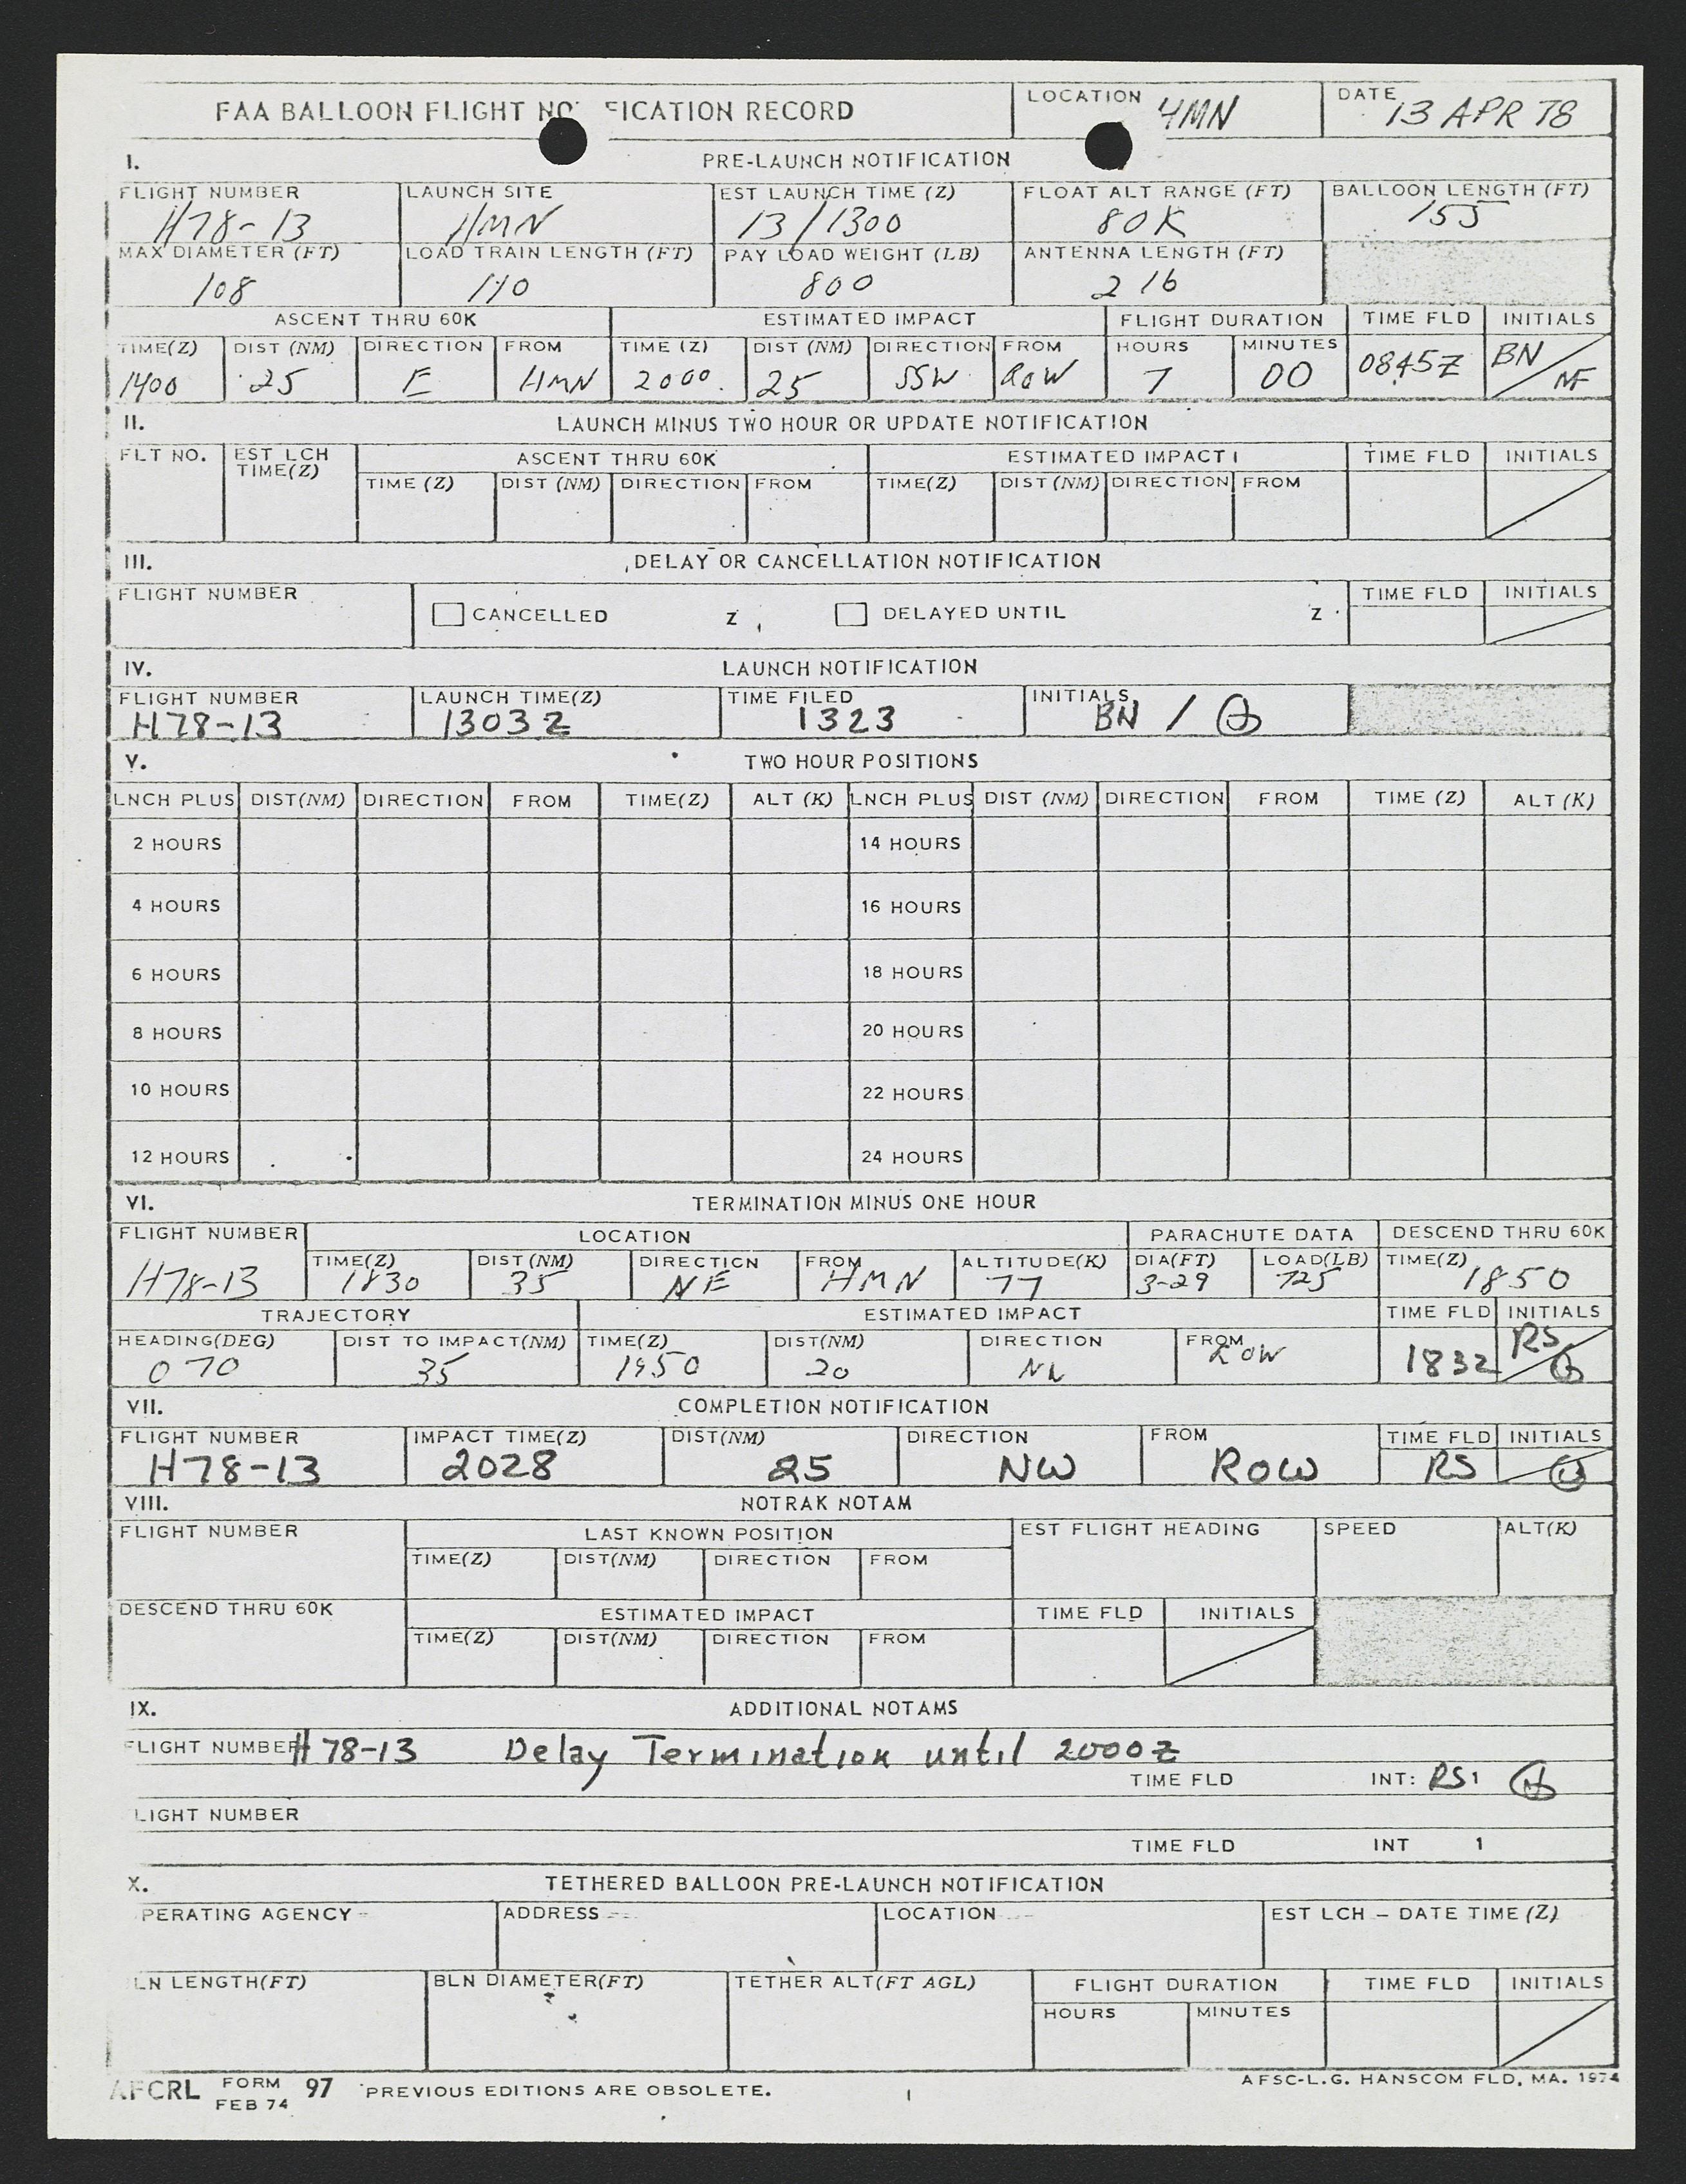 FAA BALLOON FLIGHT NO FICATION RECORD LOCATION HMN DATE 13 APR 78
I. PRE-LAUNCH NOTIFICATION
FLIGHT NUMBER LAUNCH SITE EST LAUNCH TIME (Z) FLOAT ALT RANGE (FT) BALLOON LENGTH (FT)
H78-13 HMN 13/1300 80K 155
MAX DIAMETER (FT) LOAD TRAIN LENGTH (FT) PAY LOAD WEIGHT (LB) ANTENNA LENGTH (FT)
108 110 800 216
ASCENT THRU 60K ESTIMATED IMPACT FLIGHT DURATION TIME FLD INITIALS
TIME(Z) DIST (NM) DIRECTION FROM TIME (Z) DIST (NM) DIRECTION FROM HOURS MINUTES
1400 25 E HMN 2000 25 SSW ROW 7 00 0845Z BN / NF
II. LAUNCH MINUS TWO HOUR OR UPDATE NOTIFICATION
FLT NO. EST LCH TIME(Z) ASCENT THRU 60K ESTIMATED IMPACT TIME FLD INITIALS
TIME (Z) DIST (NM) DIRECTION FROM TIME(Z) DIST (NM) DIRECTION FROM
III. DELAY OR CANCELLATION NOTIFICATION
FLIGHT NUMBER TIME FLD INITIALS
CANCELLED Z DELAYED UNTIL Z
IV. LAUNCH NOTIFICATION
FLIGHT NUMBER LAUNCH TIME(Z) TIME FILED INITIALS
H78-13 1303Z 1323 BN /
V. TWO HOUR POSITIONS
LNCH PLUS DIST(NM) DIRECTION FROM TIME(Z) ALT (K) LNCH PLUS DIST (NM) DIRECTION FROM TIME (Z) ALT (K)
2 HOURS 14 HOURS
4 HOURS 16 HOURS
6 HOURS 18 HOURS
8 HOURS 20 HOURS
10 HOURS 22 HOURS
12 HOURS 24 HOURS
VI. TERMINATION MINUS ONE HOUR
FLIGHT NUMBER LOCATION PARACHUTE DATA DESCEND THRU 60K
TIME(Z) DIST (NM) DIRECTION FROM ALTITUDE(K) DIA(FT) LOAD(LB) TIME(Z)
H78-13 1830 35 NE HMN 77 3-29 725 1850
TRAJECTORY ESTIMATED IMPACT TIME FLD INITIALS
HEADING(DEG) DIST TO IMPACT(NM) TIME(Z) DIST(NM) DIRECTION FROM
070 35 1950 20 ROW 1832 RS
VII. COMPLETION NOTIFICATION
FLIGHT NUMBER IMPACT TIME(Z) DIST(NM) DIRECTION FROM TIME FLD INITIALS
H78-13 2028 25 NW ROW RS
VIII. NOTRAK NOTAM
FLIGHT NUMBER LAST KNOWN POSITION EST FLIGHT HEADING SPEED ALT(K)
TIME(Z) DIST(NM) DIRECTION FROM
DESCEND THRU 60K ESTIMATED IMPACT TIME FLD INITIALS
TIME(Z) DIST(NM) DIRECTION FROM
IX. ADDITIONAL NOTAMS
FLIGHT NUMBER H78-13 Delay Termination until 2000Z
TIME FLD INT: RS /
LIGHT NUMBER
TIME FLD INT /
X. TETHERED BALLOON PRE-LAUNCH NOTIFICATION
PERATING AGENCY ADDRESS LOCATION EST LCH - DATE TIME (Z)
LN LENGTH(FT) BLN DIAMETER(FT) TETHER ALT(FT AGL) FLIGHT DURATION TIME FLD INITIALS
HOURS MINUTES
AFCRL FORM FEB 74 97 PREVIOUS EDITIONS ARE OBSOLETE. AFSC-L.G. HANSCOM FLD, MA. 1974